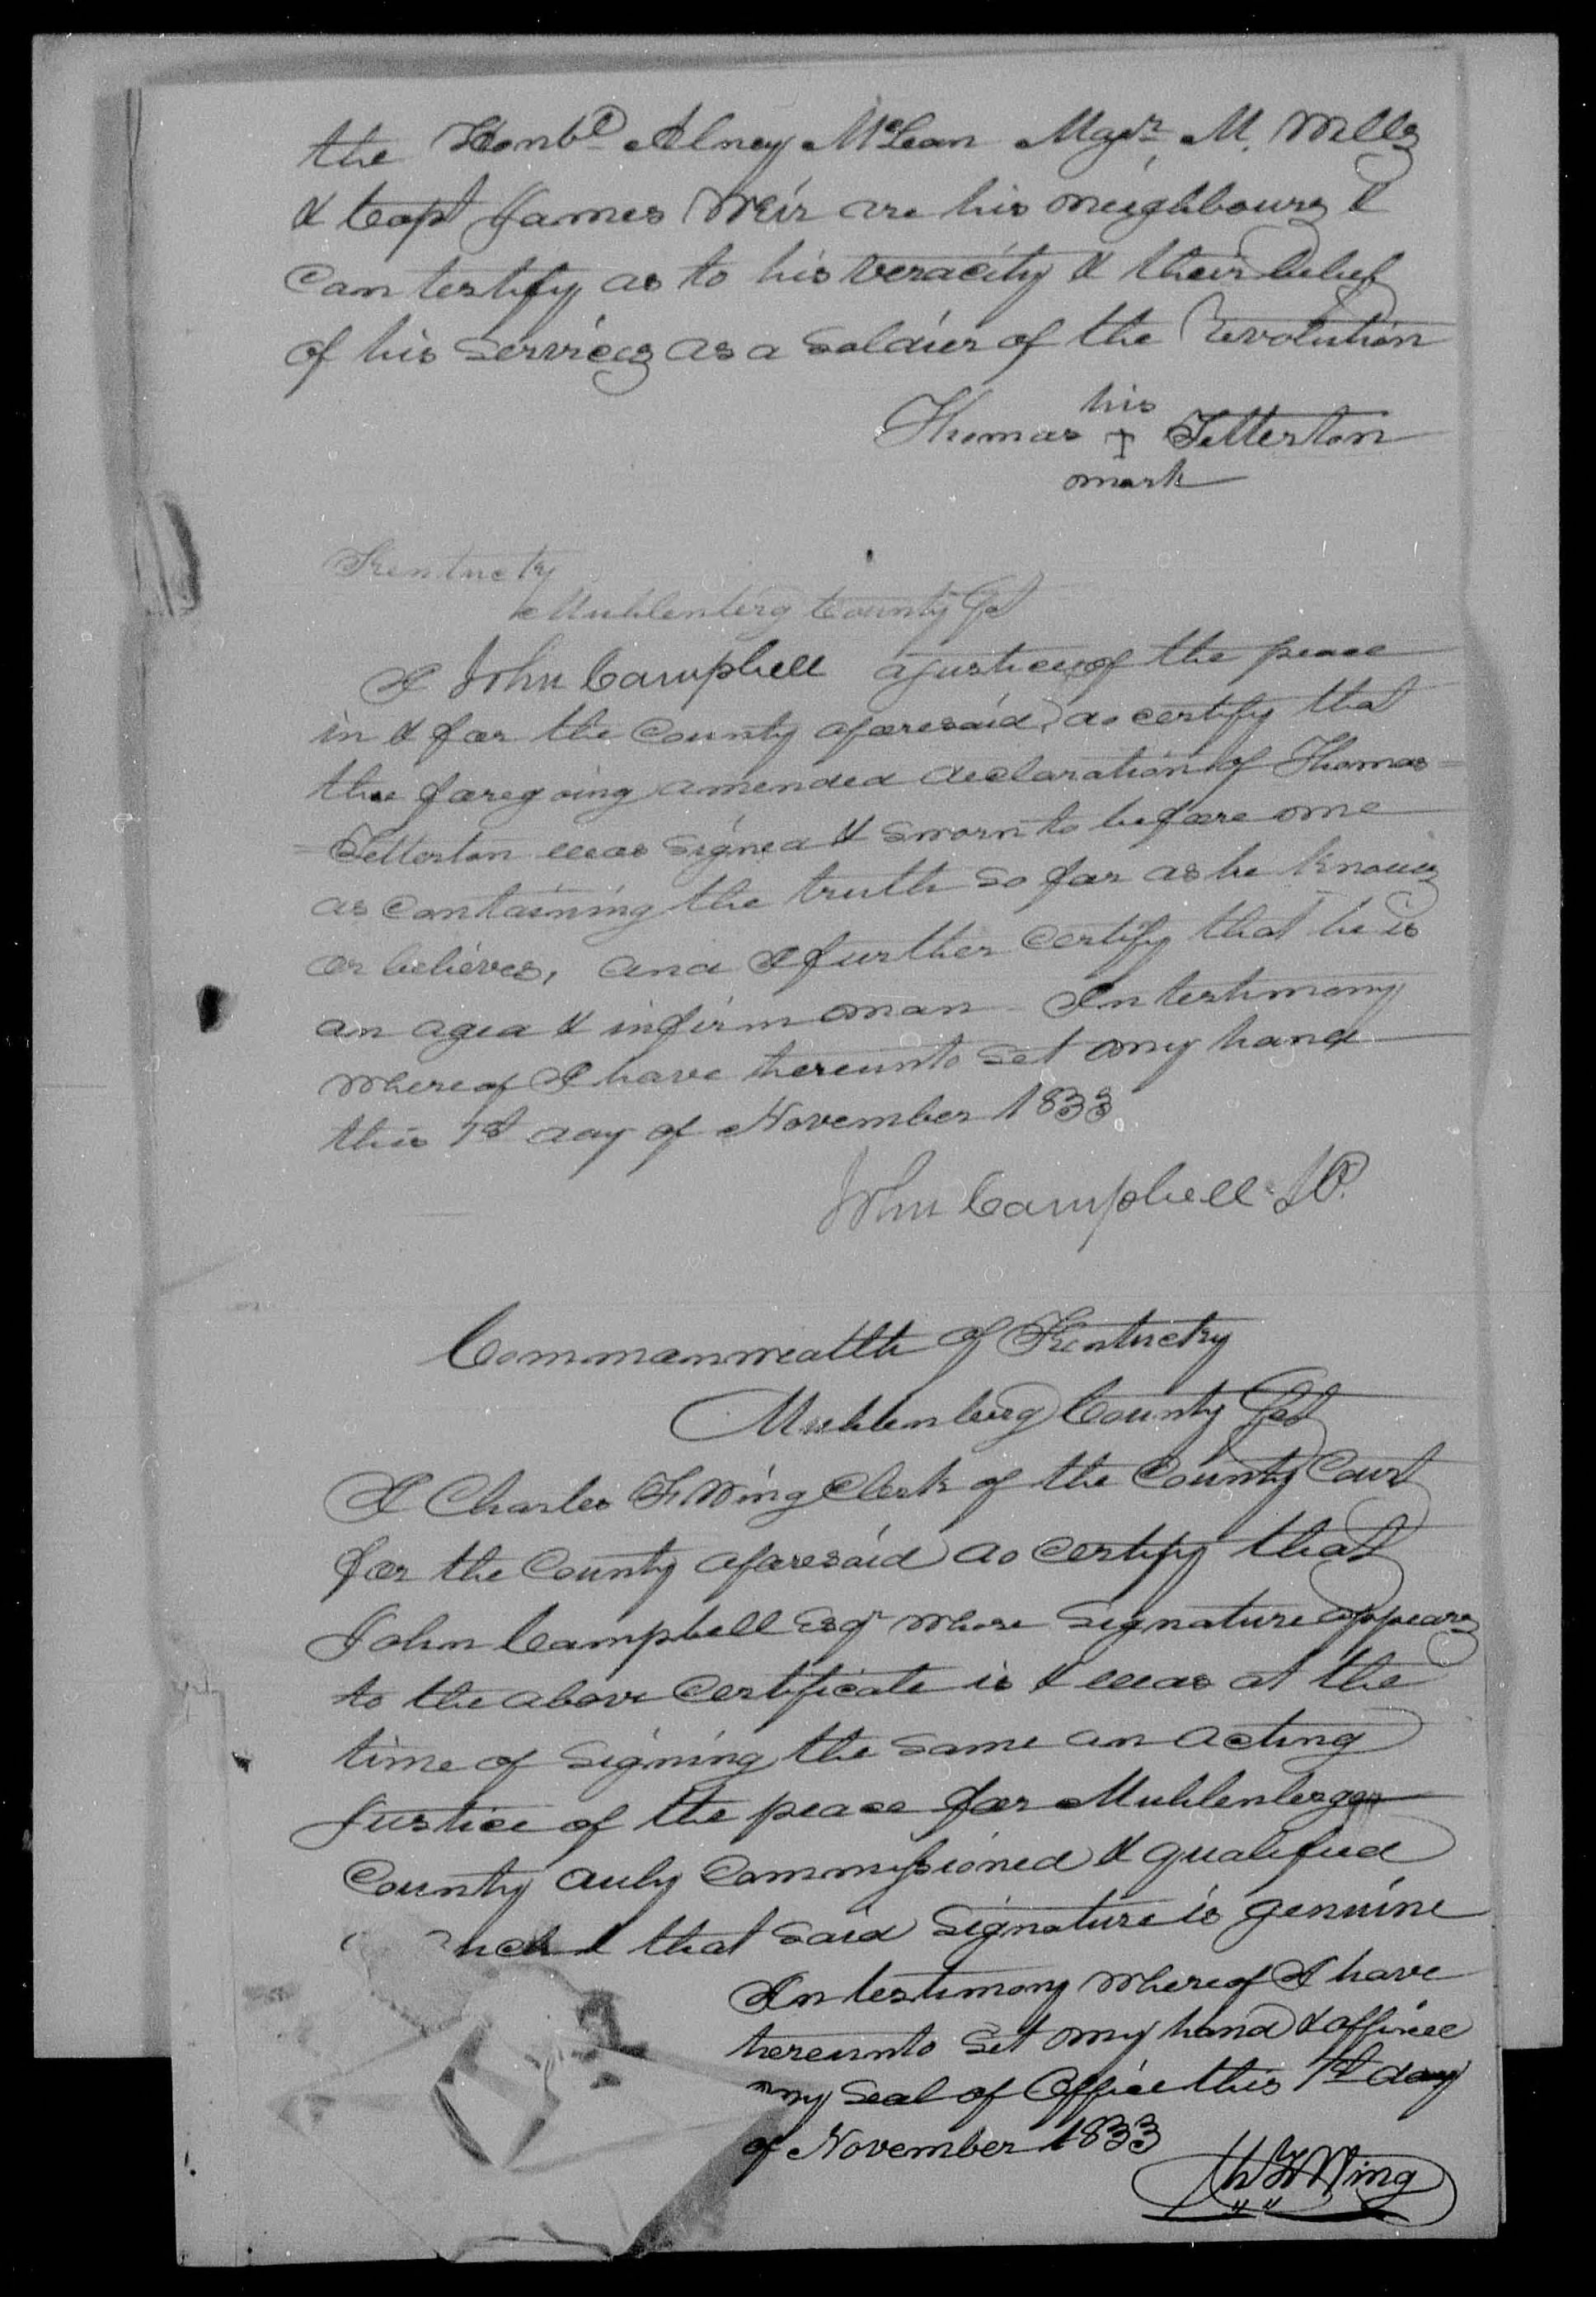 the Honble Alney McLean Majr. M. Wells
& Capt James Weir are his neighbours &
can testify as to his veracity & their belief
of his services as a soldier of the Revolution
his
Thomas + Tetterton
mark
Kentucky
Muhlenberg County Sct
I John Campbell a justice of the peace
in & for the County aforesaid, do certify that
the foregoing amended declaration of Thomas
Tetterton was signed & sworn to before me
as containing the truth so far as he knows
or believes, and I further certify that he is
an aged & infirm man In testimony
whereof I have hereunto set my hand
this 1st day of November 1833.
John Campbell JP.
Commonwealth of Kentucky
Muhlenberg County Sct
I Charles F Wing Clerk of the County Court
for the County aforesaid do certify that
John Campbell Esqr whose signature appears
to the above certificate is & was at the
time of signing the same an acting
Justice of the peace for Muhlenberg
County duly commissioned & qualified
such & that said signature is genuine
In testimony whereof I have
hereunto set my hand & affixed
my seal of office this 1st day
of November 1833
Ch F Wing